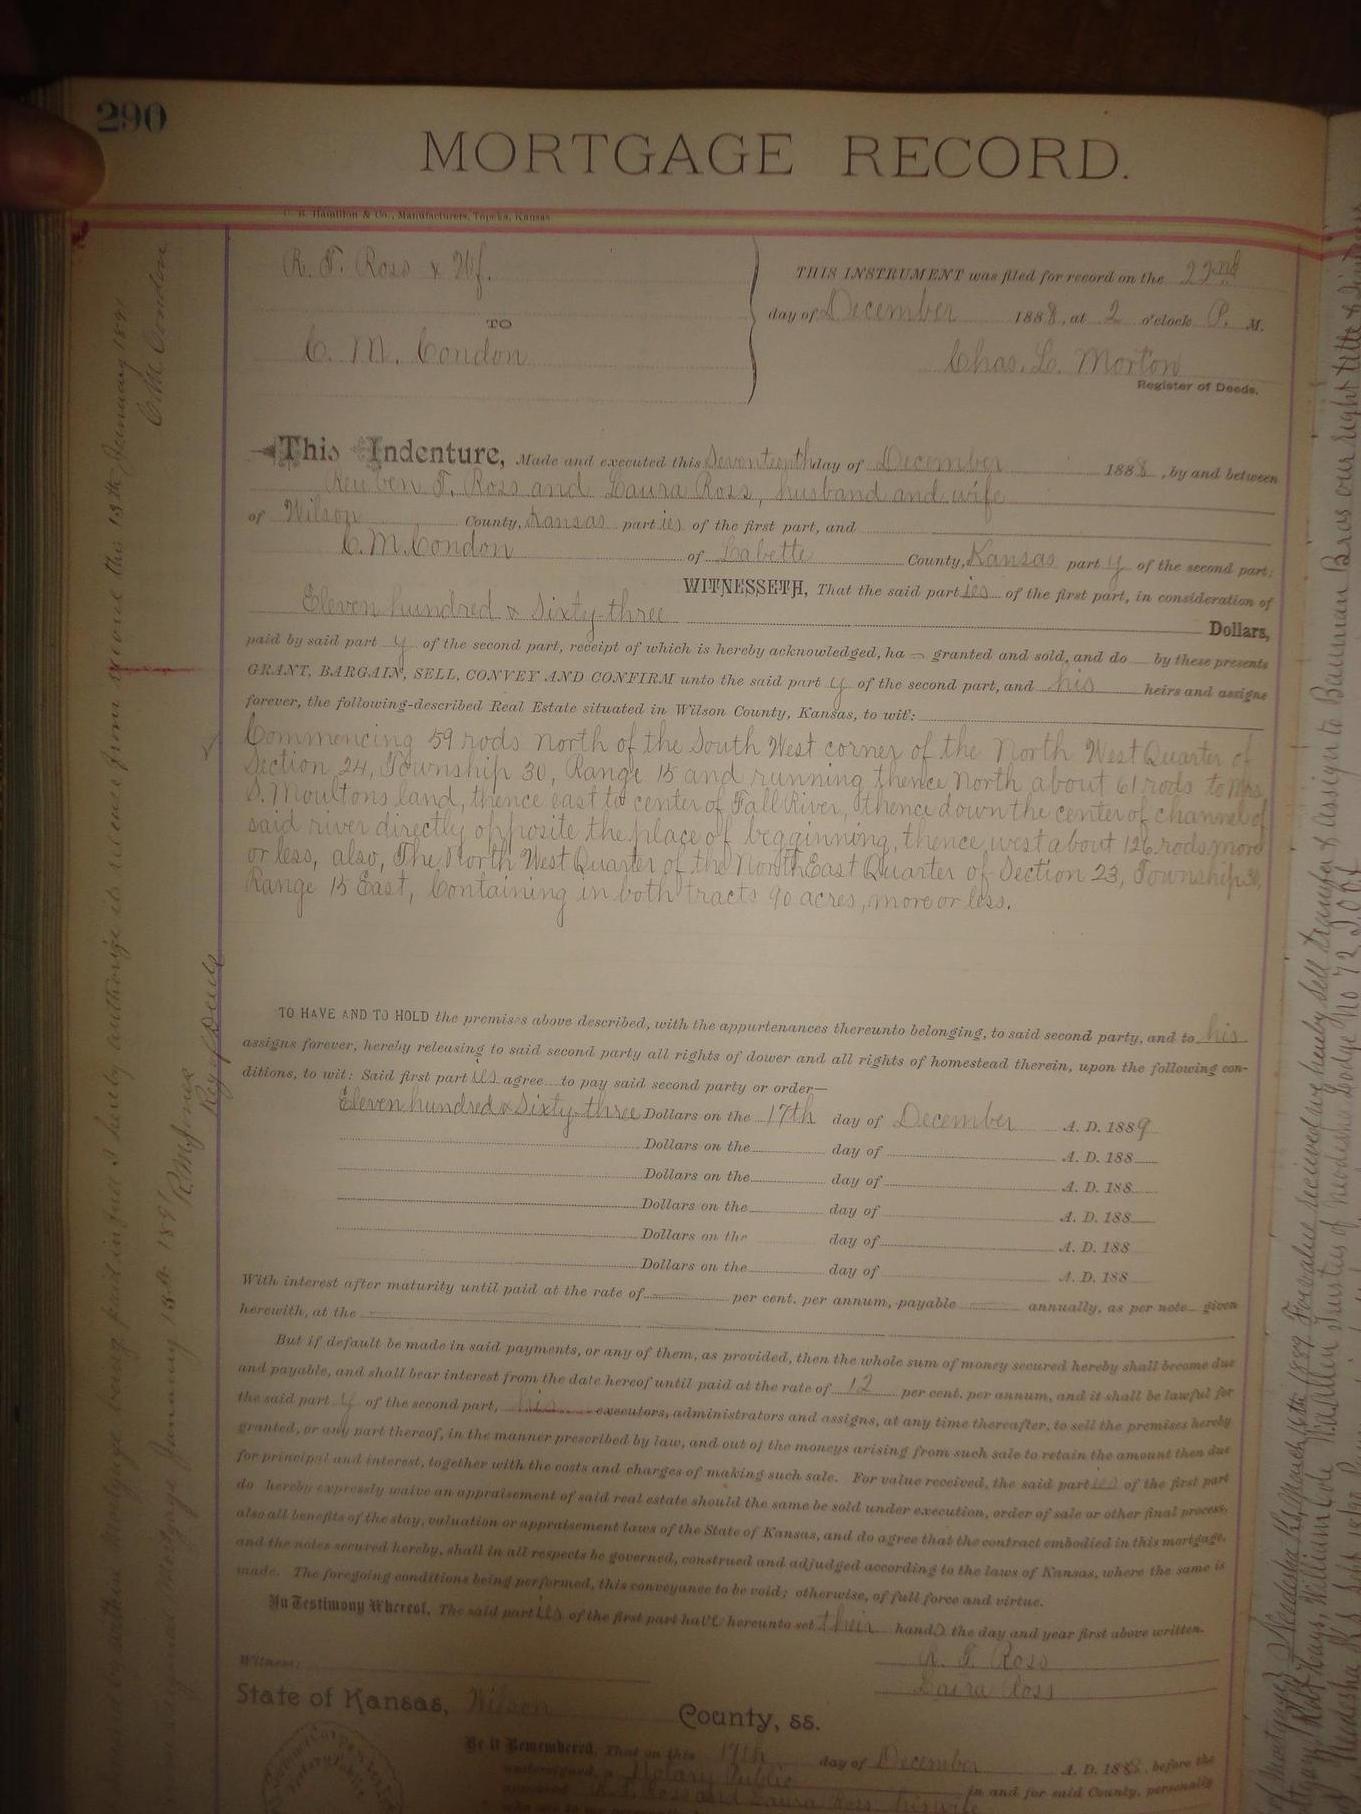 290
MORTGAGE RECORD.
C. B. Hamilton & Co., Manufacturers, Topeka, Kansas
R. F. Ross & Wf.
TO
C. M. Condon
THIS INSTRUMENT was filed for record on the 22nd
day of December 1888, at 2 o'clock P. M.
Chas. L. Morton
Register of Deeds.
This Indenture, Made and executed this Seventeenth day of December 1888, by and between
Reuben F. Ross and Laura Ross, husband and wife
of Wilson County, Kansas parties of the first part, and
C. M. Condon of Labette County, Kansas party of the second part;
WITNESSETH, That the said parties of the first part, in consideration of
Eleven hundred & Sixty-three Dollars,
paid by said party of the second part, receipt of which is hereby acknowledged, ha granted and sold, and do by these presents
GRANT, BARGAIN, SELL, CONVEY AND CONFIRM unto the said party of the second part, and his heirs and assigns
forever, the following-described Real Estate situated in Wilson County, Kansas, to wit:
Commencing 59 rods north of the South West corner of the North West Quarter of
Section 24, Township 30, Range 15 and running thence North about 61 rods to Mrs
S. Moultons land, thence east to center of Fall River, thence down the center of channel of
said river directly opposite the place of begginning, thence west about 126 rods more
or less, also, The North West Quarter of the North East Quarter of Section 23, Township 30,
Range 15 East, Containing in both tracts 90 acres, more or less.
TO HAVE AND TO HOLD the premises above described, with the appurtenances thereunto belonging, to said second party, and to his
assigns forever, hereby releasing to said second party all rights of dower and all rights of homestead therein, upon the following con-
ditions, to wit: Said first parties agree to pay said second party or order—
Eleven hundred & Sixty-three Dollars on the 17th day of December A. D. 1889
Dollars on the day of A. D. 188
Dollars on the day of A. D. 188
Dollars on the day of A. D. 188
Dollars on the day of A. D. 188
Dollars on the day of A. D. 188
With interest after maturity until paid at the rate of per cent. per annum, payable annually, as per note given
herewith, at the
But if default be made in said payments, or any of them, as provided, then the whole sum of money secured hereby shall become due
and payable, and shall bear interest from the date hereof until paid at the rate of 12 per cent. per annum, and it shall be lawful for
the said party of the second part, his executors, administrators and assigns, at any time thereafter, to sell the premises hereby
granted, or any part thereof, in the manner prescribed by law, and out of the moneys arising from such sale to retain the amount then due
for principal and interest, together with the costs and charges of making such sale. For value received, the said parties of the first part
do hereby expressly waive an appraisement of said real estate should the same be sold under execution, order of sale or other final process,
also all benefits of the stay, valuation or appraisement laws of the State of Kansas, and do agree that the contract embodied in this mortgage,
and the notes secured hereby, shall in all respects be governed, construed and adjudged according to the laws of Kansas, where the same is
made. The foregoing conditions being performed, this conveyance to be void; otherwise, of full force and virtue.
In Testimony Whereof, The said parties of the first part have hereunto set their hands the day and year first above written.
R. F. Ross
Witness:
Laura Ross
State of Kansas, Wilson County, ss.
Be it Remembered, That on this 17th day of December A. D. 1888, before the
undersigned, a Notary Public in and for said County, personally
R. F. Ross and Laura Ross, his wife
mortgage being paid in full I hereby authorize its release from record this 13th January 1891
C. M. Condon
Mortgage January 1891
Reg of Deeds